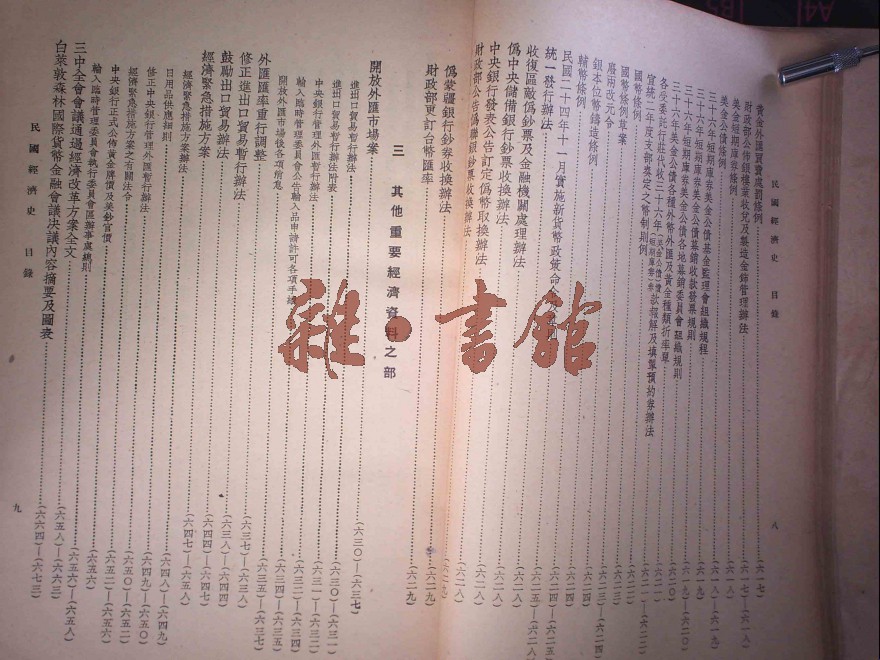 民國經濟史 目錄 八
黃金外匯買賣處罰條例……(六一七)
財政部公佈銀樓業收兌及製造金飾管理辦法……(六一七)—(六一八)
美金短期庫券條例……(六一八)
美金公債條例……(六一八)
三十六年短期庫券美金公債基金監理會組織規程……(六一八)—(六一九)
三十六年短期庫券美金公債募銷收款發票規則……(六一九)
三十六年美金公債各地募銷委員會組織規則……(六一九)—(六二〇)
各受委託行莊代收三十六年
宣統二年度支部奏定之幣制則例
國幣條例草案
國幣條例
廢兩改元令
銀本位幣鑄造條例
輔幣條例
民國二十四年十一月實施新貨幣政策命令
統一發行辦法
收復區敵偽鈔票及金融機關處理辦法
偽中央儲備銀行鈔票收換辦法……(六二八)
中央銀行發表公告訂定偽幣取換辦法……(六二八)
財政部公告偽聯銀鈔票收換辦法……(六二八)
偽蒙疆銀行鈔券收換辦法
財政部更訂台幣匯率……(六二九)
三 其他重要經濟資料之部
開放外匯市場案……(六三〇)—(六三七)
進出口貿易暫行辦法……(六三〇)—(六三一)
進出口貿易暫行辦法附表
中央銀行管理外匯暫行辦法……(六三一)—(六三二)
輸入臨時管理委員會公告輸入品申請許可各項手續……(六三二)—(六三四)
開放外匯市場後各項消息……(六三四)—(六三五)
外匯匯率重行調整……(六三五)—(六三七)
修正進出口貿易暫行辦法……(六三七)—(六三八)
鼓勵出口貿易辦法……(六三八)—(六四四)
經濟緊急措施方案……(六四四)—(六四七)
經濟緊急措施方案辦法……(六四七)—(六五八)
日用品供應細則……(六四八)—(六四九)
修正中央銀行管理外匯暫行辦法……(六四九)—(六五〇)
經濟緊急措施方案之有關法令……(六五〇)—(六五二)
中央銀行正式公佈黃金牌價及美鈔官價……(六五二)—(六五六)
輸入臨時管理委員會執行委員會區辦事處總則……(六五六)
三中全會會議通過經濟改革方案全文……(六五六)—(六五八)
白萊敦森林國際貨幣金融會議決議內容摘要及圖表……(六六四)—(六七三)
民國經濟史 目錄 九
雜·書館